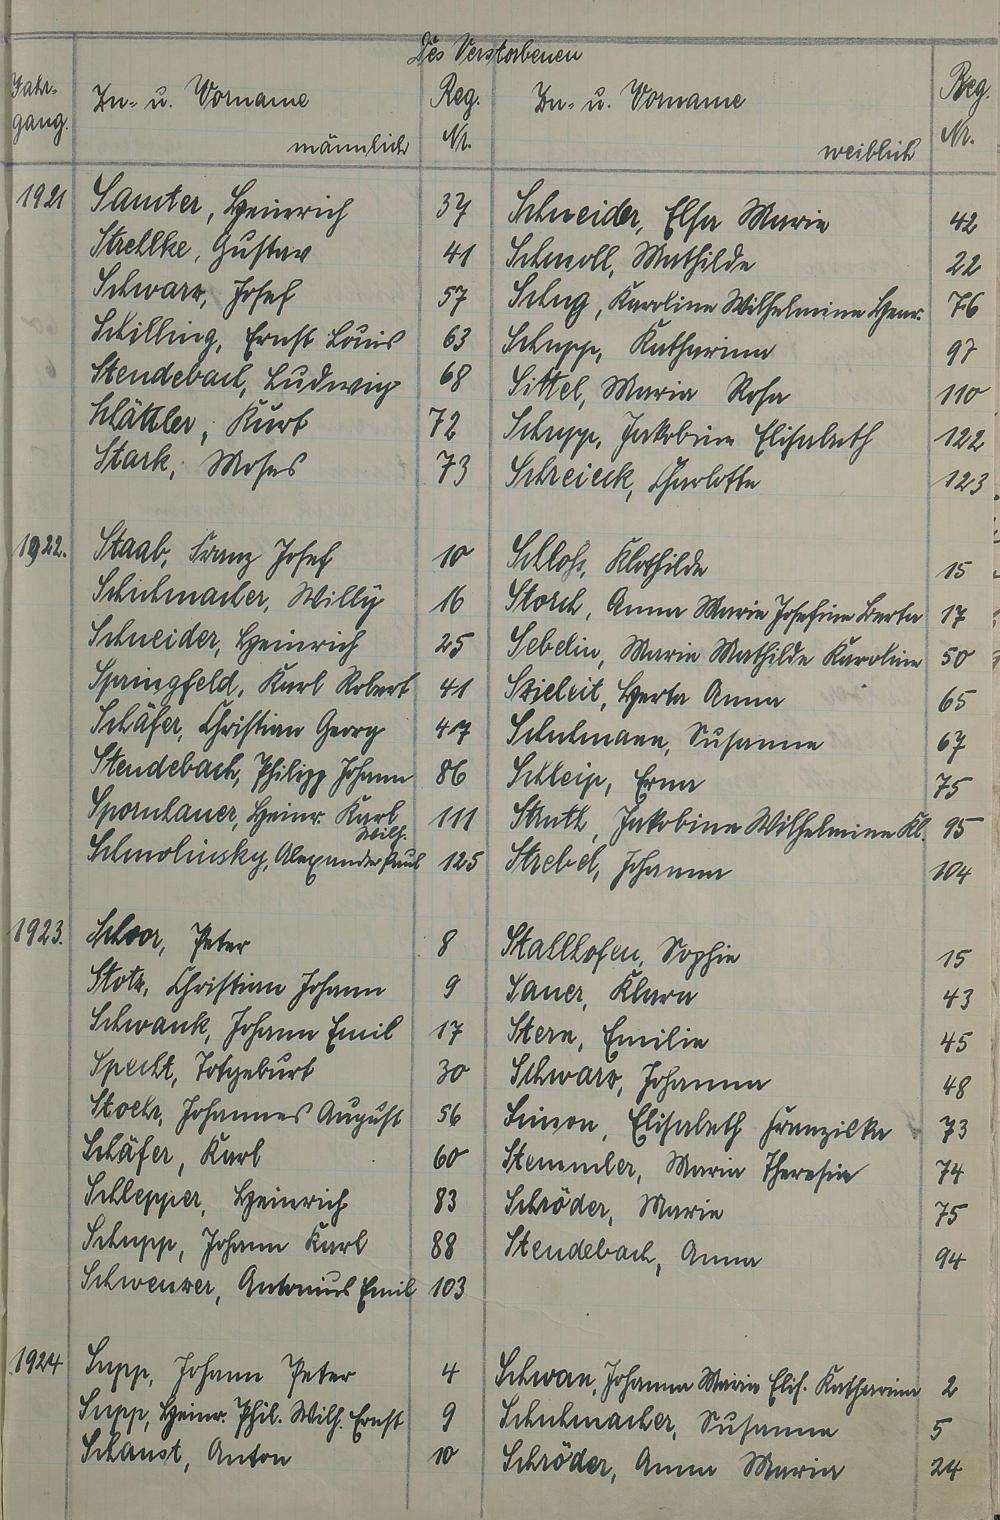 Des Verstorbenen
Jahr-
gang.
Zu- u. Vorname
männlich
Reg.
Nr.
Zu- u. Vorname
weiblich
Reg.
Nr.
1921 Samter, Heinrich 37 Schneider, Elsa Maria 42
Strehlke, Gustav 41 Schmoll, Mathilde 22
Schwarz, Josef 57 Schug, Karoline Wilhelmine Henr. 76
Schilling, Ernst Louis 63 Schupp, Katharina 97
Stendebach, Ludwig 68 Sittel, Maria Rosa 110
Schlättler, Kurt 72 Schupp, Jakobine Elisabeth 122
Stark, Moses 73 Schreieck, Charlotte 123
1922. Staab, Franz Josef 10 Schloß, Klothilde 15
Schuhmacher, Willy 16 Storch, Anna Maria Josefine Berta 17
Schneider, Heinrich 25 Sebelin, Marie Mathilde Karoline 50
Springfeld, Karl Robert 41 Szieleit, Herta Anna 65
Schäfer, Christian Georg 47 Schuhmann, Susanna 67
Stendebach, Philipp Johann 86 Schleip, Erna 75
Spornhauer, Heinr. Karl 111 Struth, Jakobine Wilhelmine Kl. 95
Wilh.
Schmolinsky, Alexander Paul 125 Strebel, Johanna 104
1923. Schoor, Peter 8 Stallhofen, Sophie 15
Stotz, Christian Johann 9 Sauer, Klara 43
Schwank, Johann Emil 17 Stern, Emilie 45
Specht, Totgeburt 30 Schwarz, Johanna 48
Stoehr, Johannes August 56 Simon, Elisabeth Franziska 73
Schäfer, Karl 60 Stemmler, Maria Theresia 74
Schlepper, Heinrich 83 Schröder, Marie 75
Schupp, Johann Karl 88 Stendebach, Anna 94
Schwenzer, Antonius Emil 103
1924 Supp, Johann Peter 4 Schwan, Johanna Maria Elis. Katharina 2
Supp, Heinr. Phil. Wilh. Ernst 9 Schuhmacher, Susanna 5
Schaust, Anton 10 Schröder, Anna Maria 24